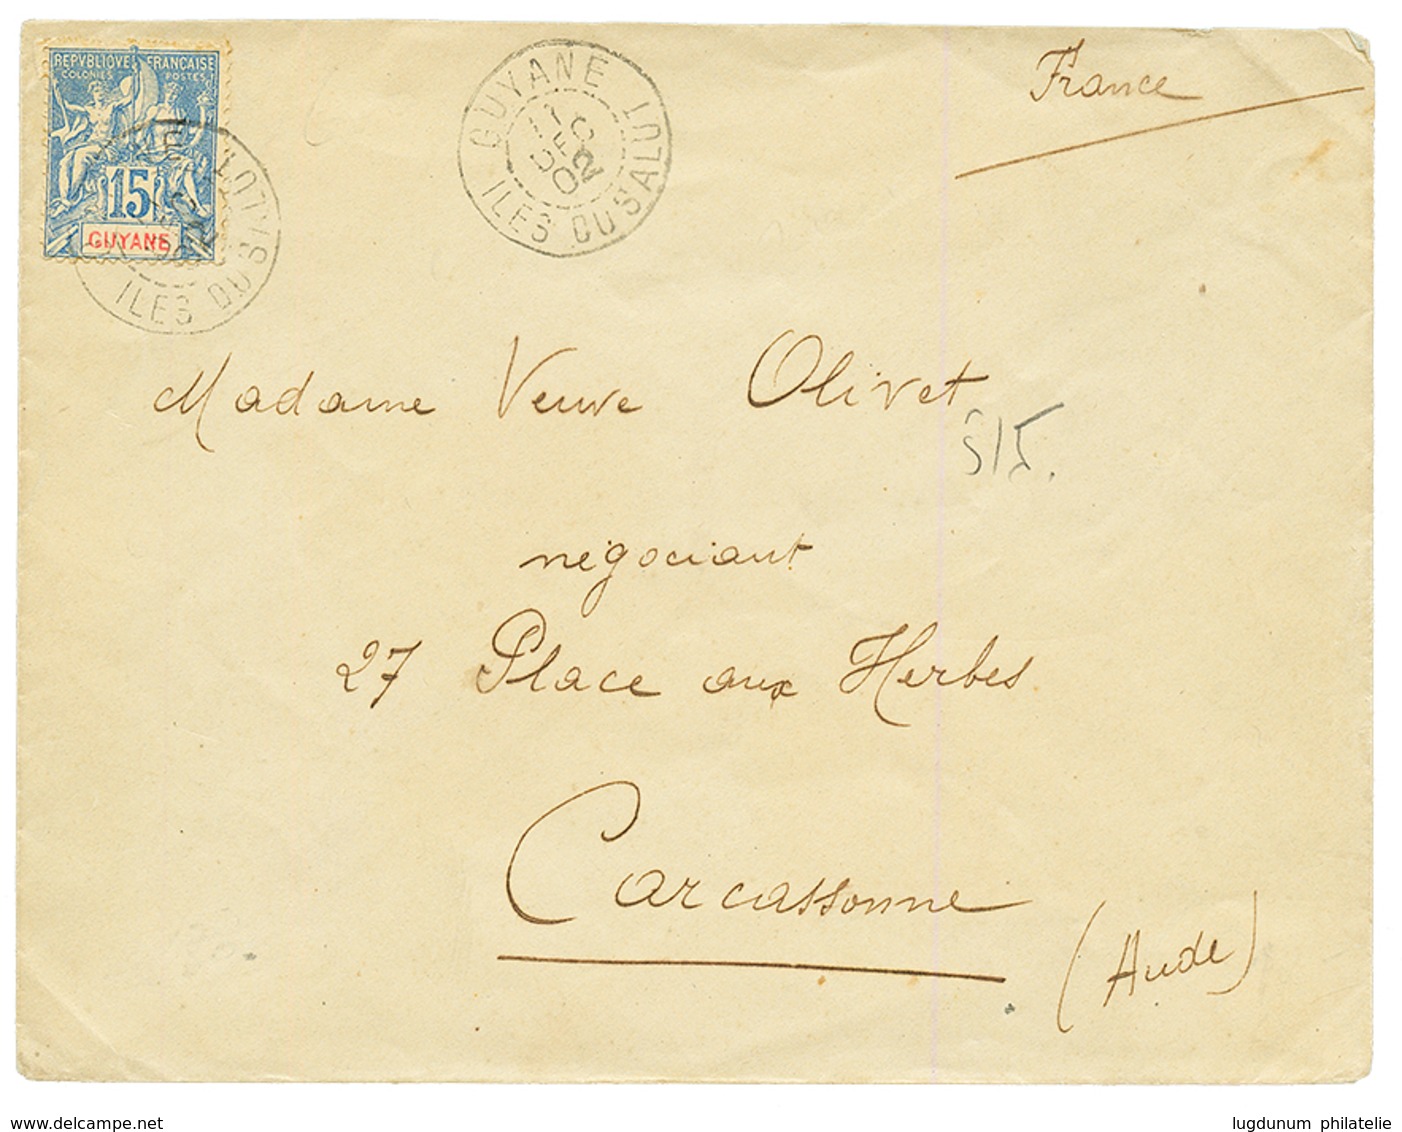 REPVBLIQVE FRANÇAISE
COLONIES POSTES
15
GUYANE
ILES DU SALUT
GUYANE
DEC
02
ILES DU SALUT
France
Madame Veuve Olivet
515.
négociant
27 Place aux Herbes
Carcassonne
(Aude)
www.delcampe.net
lugdunum philatelie